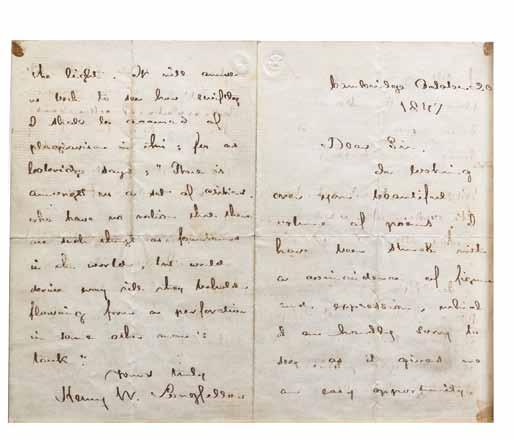 Cambridge October 30
1847
Dear Sir.
In looking
over your beautiful
volume of poems I
have been struck with
a coincidence of figure
and expression, which
I am hardly sorry to
see, as it gives me
an easy opportunity.
the light. It will amuse
us both to see how swiftly
I shall be accused of
plagiarism in this; for as
Coleridge says, "There is
amongst us a set of critics,
who have no notion that there
are such things as fountains
in the world, but would
derive every rill they behold
flowing from a perforation
in some other man's
tank."
Yours truly
Henry W. Longfellow